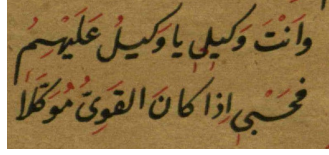 وَاَنْتَ وَكيلي يا وَكيلُ عَلَيْهِمُ
فَحَسْبي اِذا كانَ القَوِىُّ مُوَكَّلاً